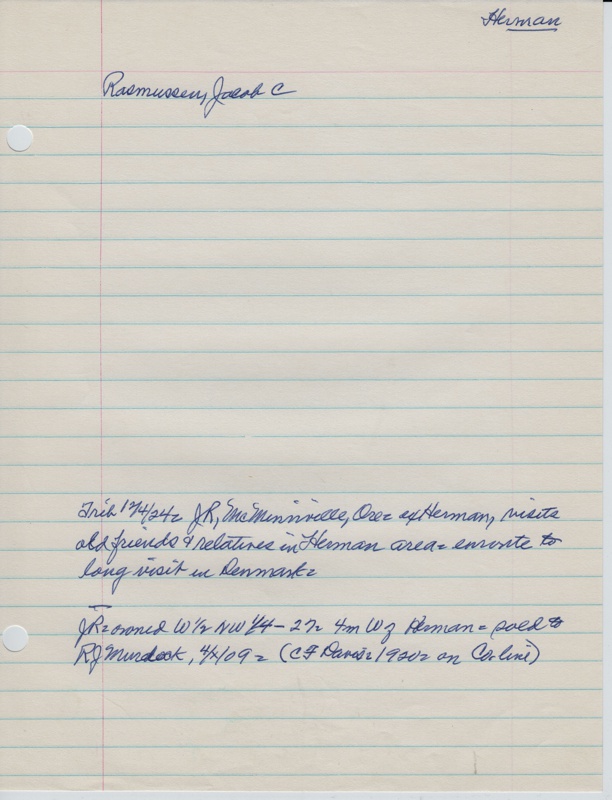 Herman
Rasmussen, Jacob C
Trib 12/4/24= JR, McMinnville, Ore= ex Herman, visits
old friends & relatives in Herman area= enroute to
long visit in Denmark=
JR= owned W 1/2 NW 1/4 - 27= 4m W of Herman= sold to
RJ Murdock, 09= (CF Davis= 1920= on Co. line)